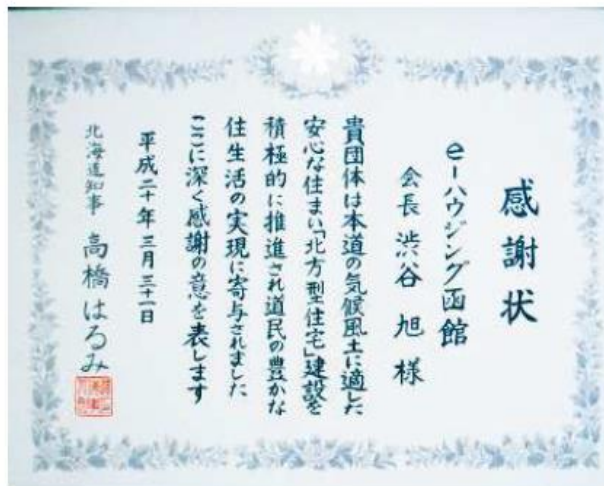 感謝状
e-ハウジング函館
会長 渋谷 旭 様
貴団体は本道の気候風土に適した
安心な住まい「北方型住宅」建設を
積極的に推進され道民の豊かな
住生活の実現に寄与されました
ここに深く感謝の意を表します
平成二十年三月三十一日
北海道知事 高橋はるみ